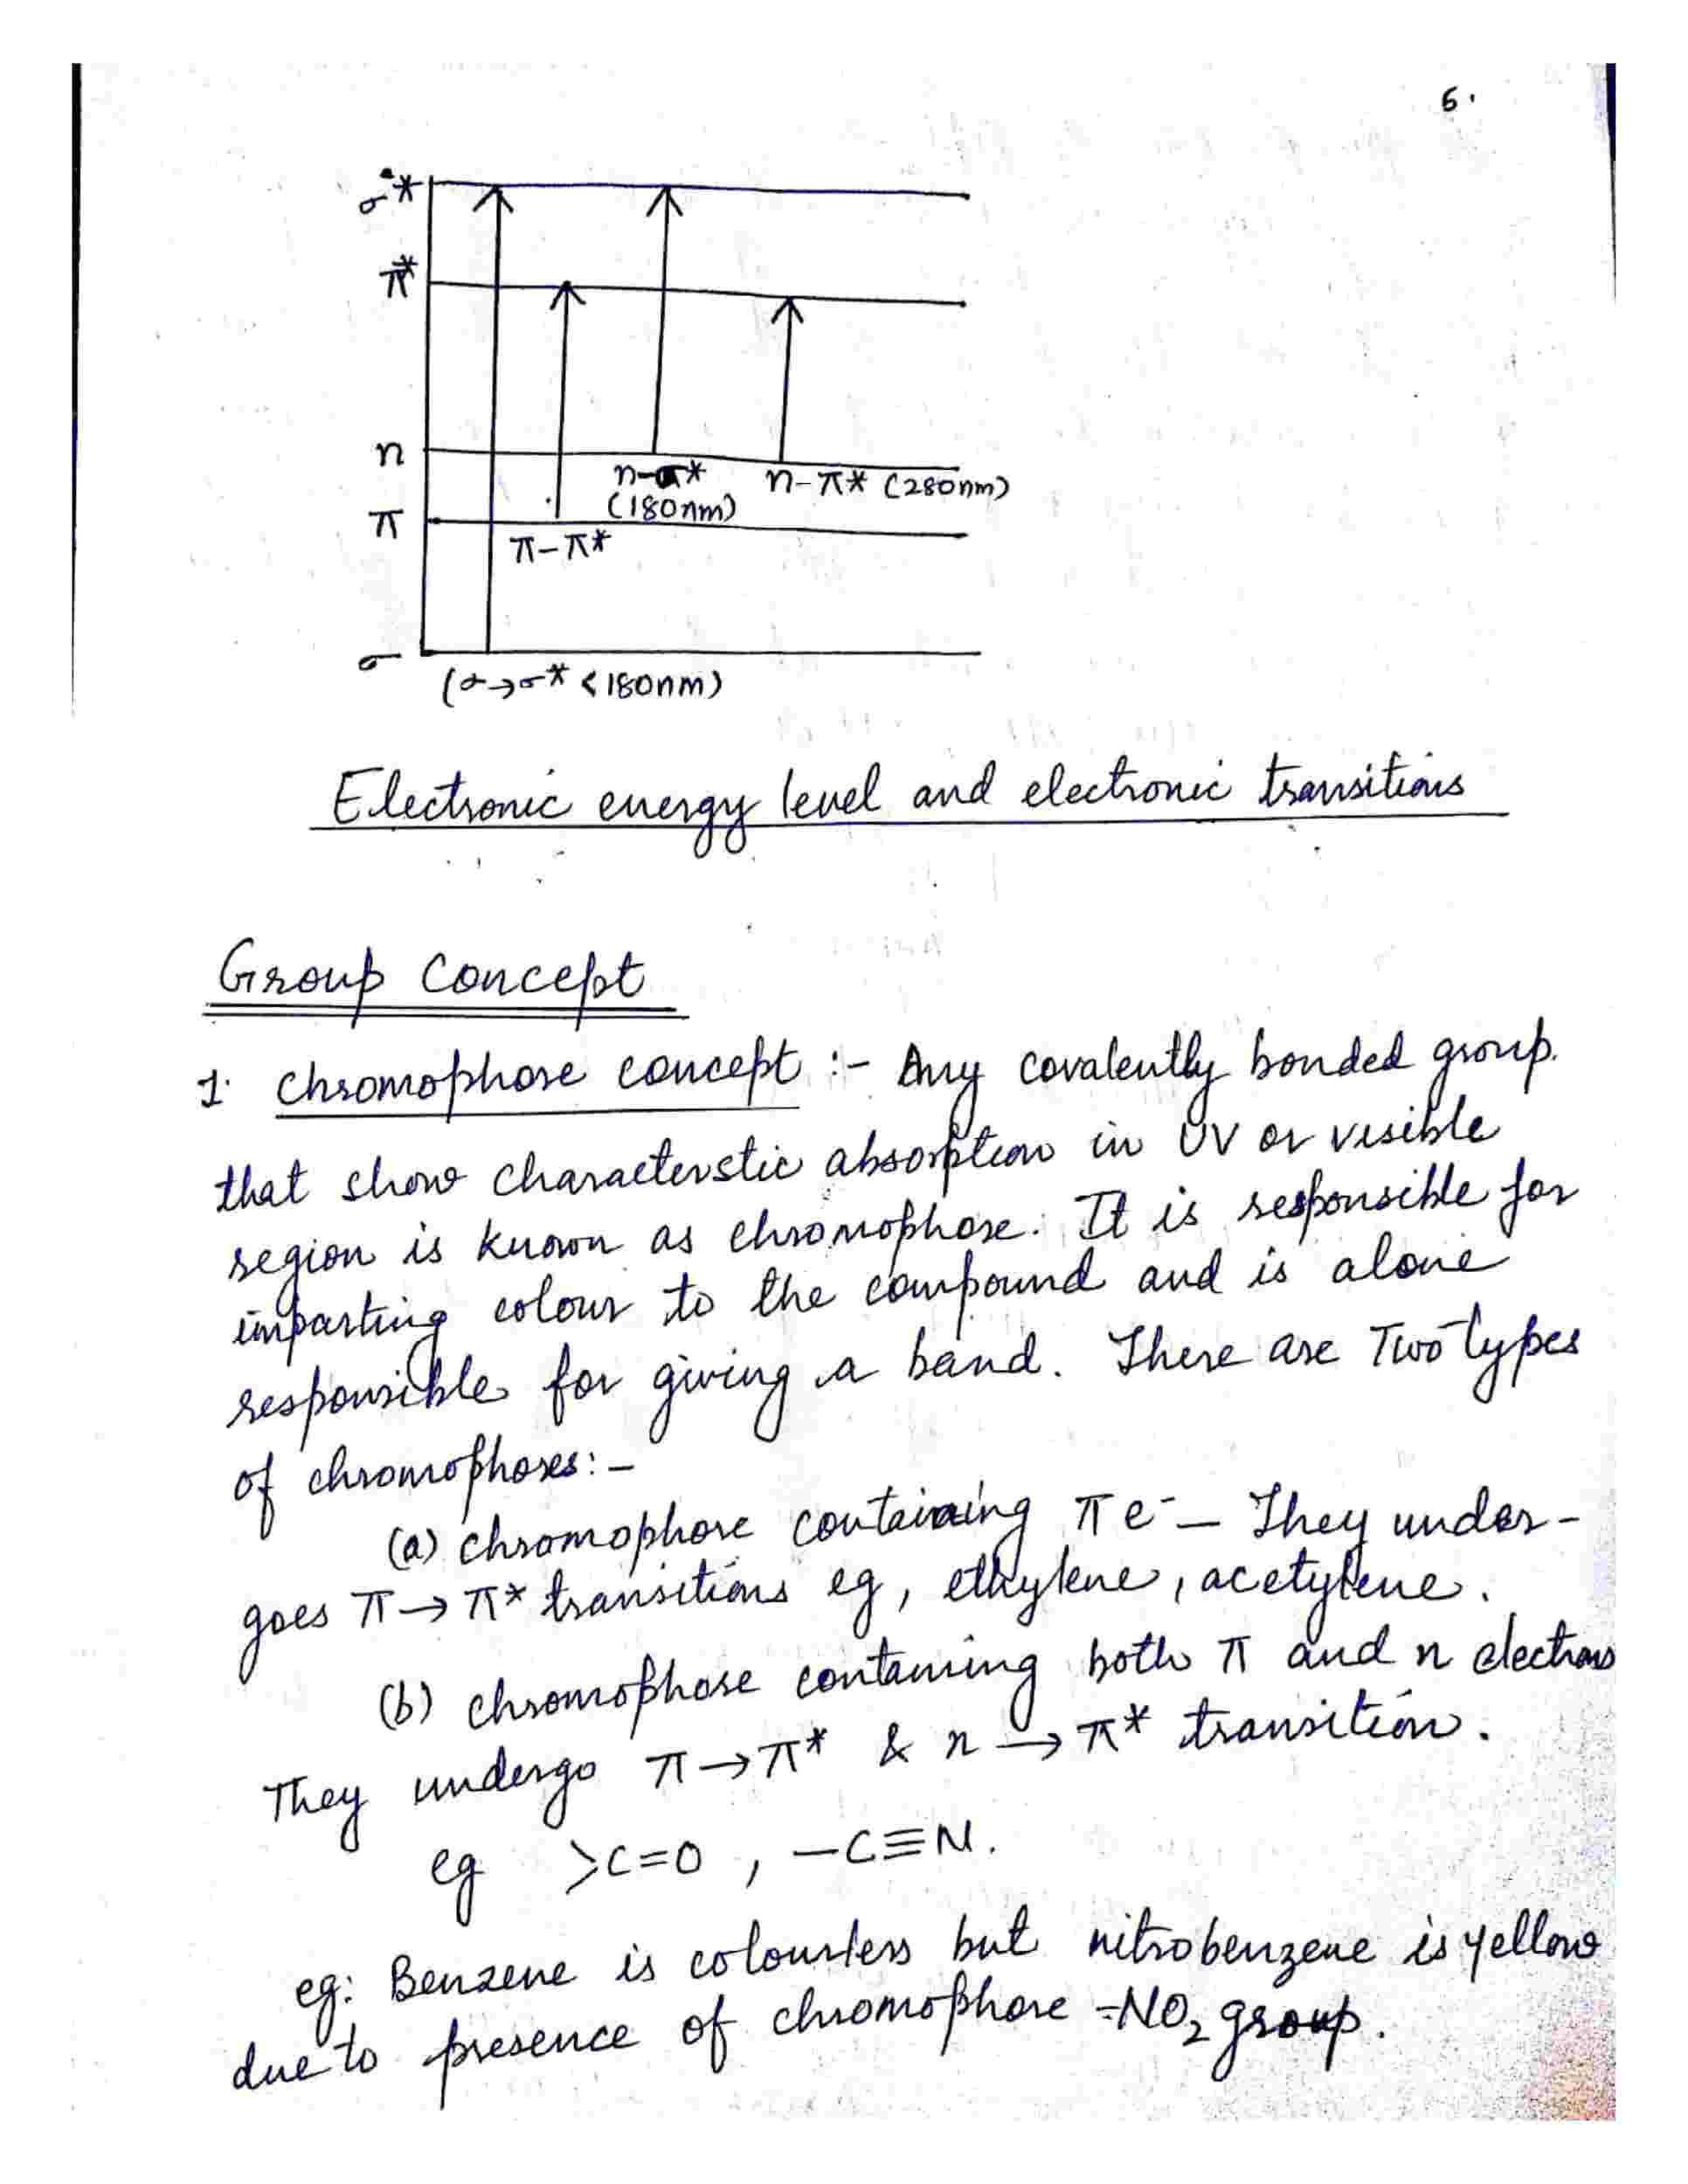 6.
σ*
π*
n
n-σ*
n-π* (280nm)
(180nm)
π
π-π*
σ
(σ→σ* <180nm)
Electronic energy level and electronic transitions
Group Concept
1. Chromophore concept :- Any covalently bonded group.
that show characterstic absorption in UV or visible
region is known as chromophore. It is responsible for
imparting colour to the compound and is alone
responsible for giving a band. There are Two types
of chromophores:-
(a) chromophore containing π e⁻ — They under-
goes π→π* transitions eg, ethylene, acetylene.
(b) chromophore containing both π and n electrons
They undergo π→π* & n→π* transition.
eg >C=O , -C≡N.
eg: Benzene is colourless but nitrobenzene is yellow
due to presence of chromophore -NO₂ group.